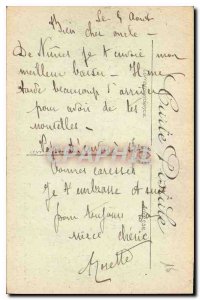 Le 5 Août
Bien cher oncle
De Nîmes je t'envoie mon
meilleur baiser
tarde beaucoup d'arriver
pour avoir de tes
nouvelles
bonnes caresses
Je t'embrasse et suis
pour toujours ta
nièce chérie
Carte Postale